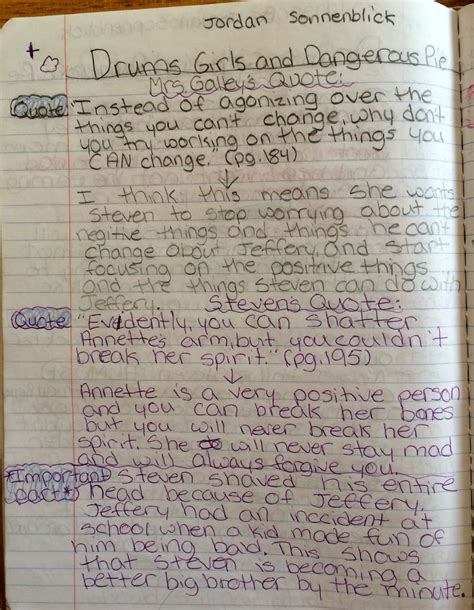 Jordan Sonnenblick
+
Drums Girls and Dangerous Pie
Mrs. Galley's Quote:
Quote "Instead of agonizing over the
things you can't change, why don't
you try working on the things you
CAN change." (pg.184)
I think this means she wants
Steven to stop worrying about the
negitive things and things he can't
change about Jeffery, and start
focusing on the positive things
and the things Steven can do with
Jeffery. Steven's Quote:
Quote "Evidently, you can shatter
Annette's arm, but you couldn't
break her spirit." (pg.195)
Annette is a very positive person
and you can break her bones
but you will never break her
spirit. She will never stay mad
and will always forgive you.
*Important part* Steven shaved his entire
head because of Jeffery.
Jeffery had an incident at
school when a kid made fun of
him being bad. This shows
that Steven is becoming a
better big brother by the minute.